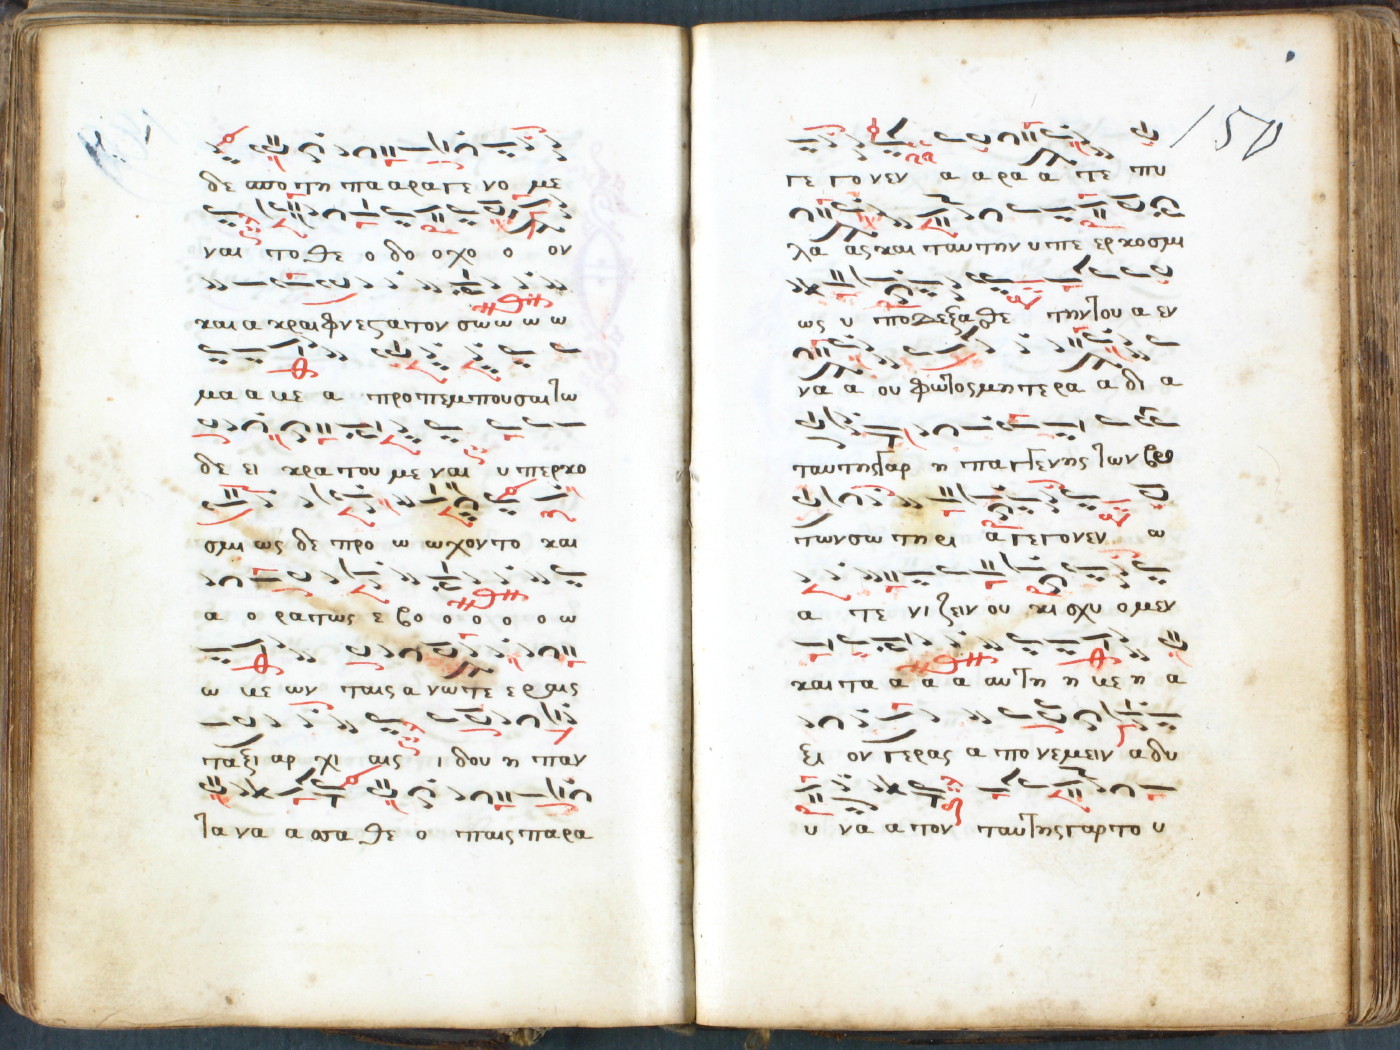 δε σποτη πα αρα γε νο με
ναι το θε ο δο ο χο ο ον
και α κραι φνεστατον σω ω ω ω
μα α με α προπεμπουσαι τω
δε ει κρα του με ναι υ περκο
σμι ως δε προ ω ωχοντο και
α ο ρατως ε βο ο ο ο ο ω
ω με ων ταις α νωτε ε ραις
ταξι αρ χι αις ι δου η παν
τα να α σσα θε ο παις παρα
150
γε γο νεν α α ρα α τε πυ
λα ας και ταυτην υ πε ερ κοσμι
ως υ ποδεξασθε την του α εν
να α ου φωτος μητερα α δι α
ταυτης γαρ η παγγενης των βρο
των σω τη ρι α γεγονεν ω
α τε νι ζειν ου κι σχυ ομεν
και τα α α α αυτη η με η α
ξι ον γερας α πο νεμειν αδυ
υ να α τον ταυτης γαρ το υ